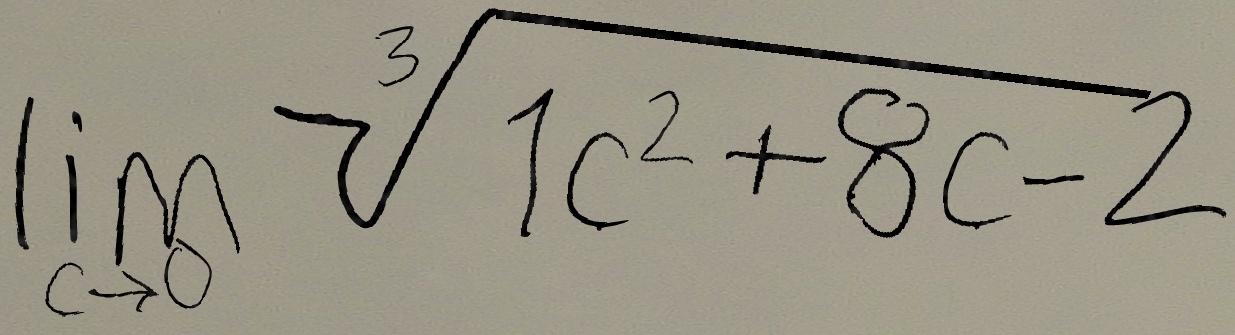 \lim_{c \to 0} \sqrt[3]{1c^2+8c-2}